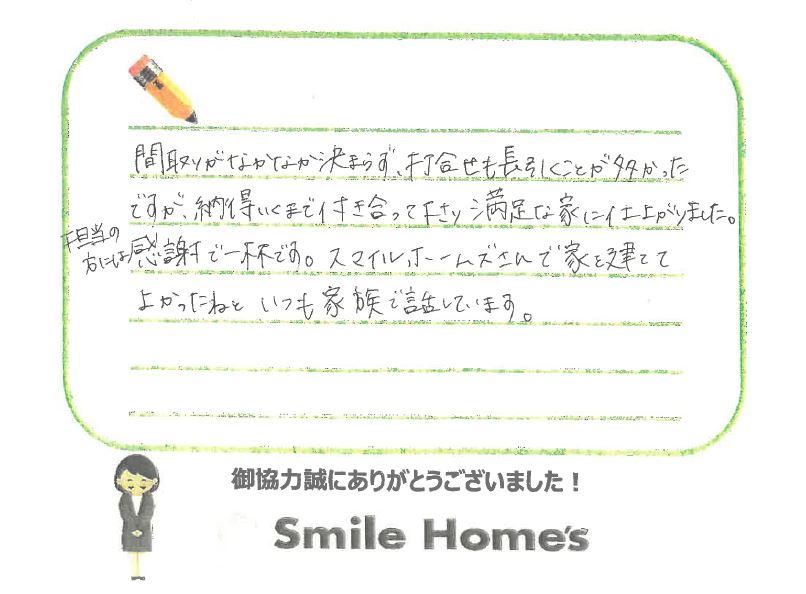 間取りがなかなか決まらず、打合せも長引くことが多かった
ですが、納得いくまで付き合って下さり満足な家に仕上がりました。
担当の
方には
感謝で一杯です。スマイルホームズさんで家を建てて
よかったねと いつも家族で話しています。
御協力誠にありがとうございました！
Smile Home's